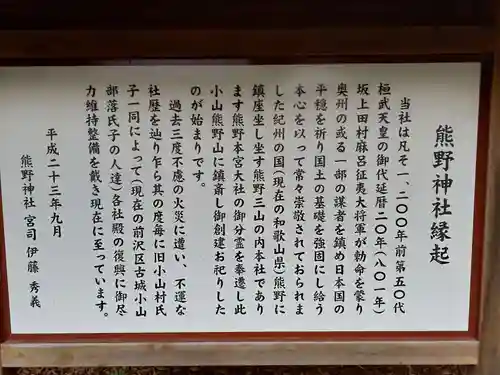 熊野神社縁起
当社は凡そ一、二〇〇年前第五〇代
桓武天皇の御代延暦二〇年（八〇一年）
坂上田村麻呂征夷大将軍が勅命を蒙り
奥州の或る一部の謀者を鎮め日本国の
平穏を祈り国土の基礎を強固にし給う
本心を以って常々崇敬されておられま
した紀州の国（現在の和歌山県）熊野に
鎮座坐し坐す熊野三山の内本社であり
ます熊野本宮大社の御分霊を奉遷し此
小山熊野山に鎮斎し御創建お祀りした
のが始まりです。
過去三度不慮の火災に遭い、不運な
社歴を辿り乍ら其の度毎に旧小山村氏
子一同によって（現在の前沢区古城小山
部落氏子の人達）各社殿の復興に御尽
力維持整備を戴き現在に至っています。
平成二十三年九月
熊野神社 宮司 伊藤 秀義